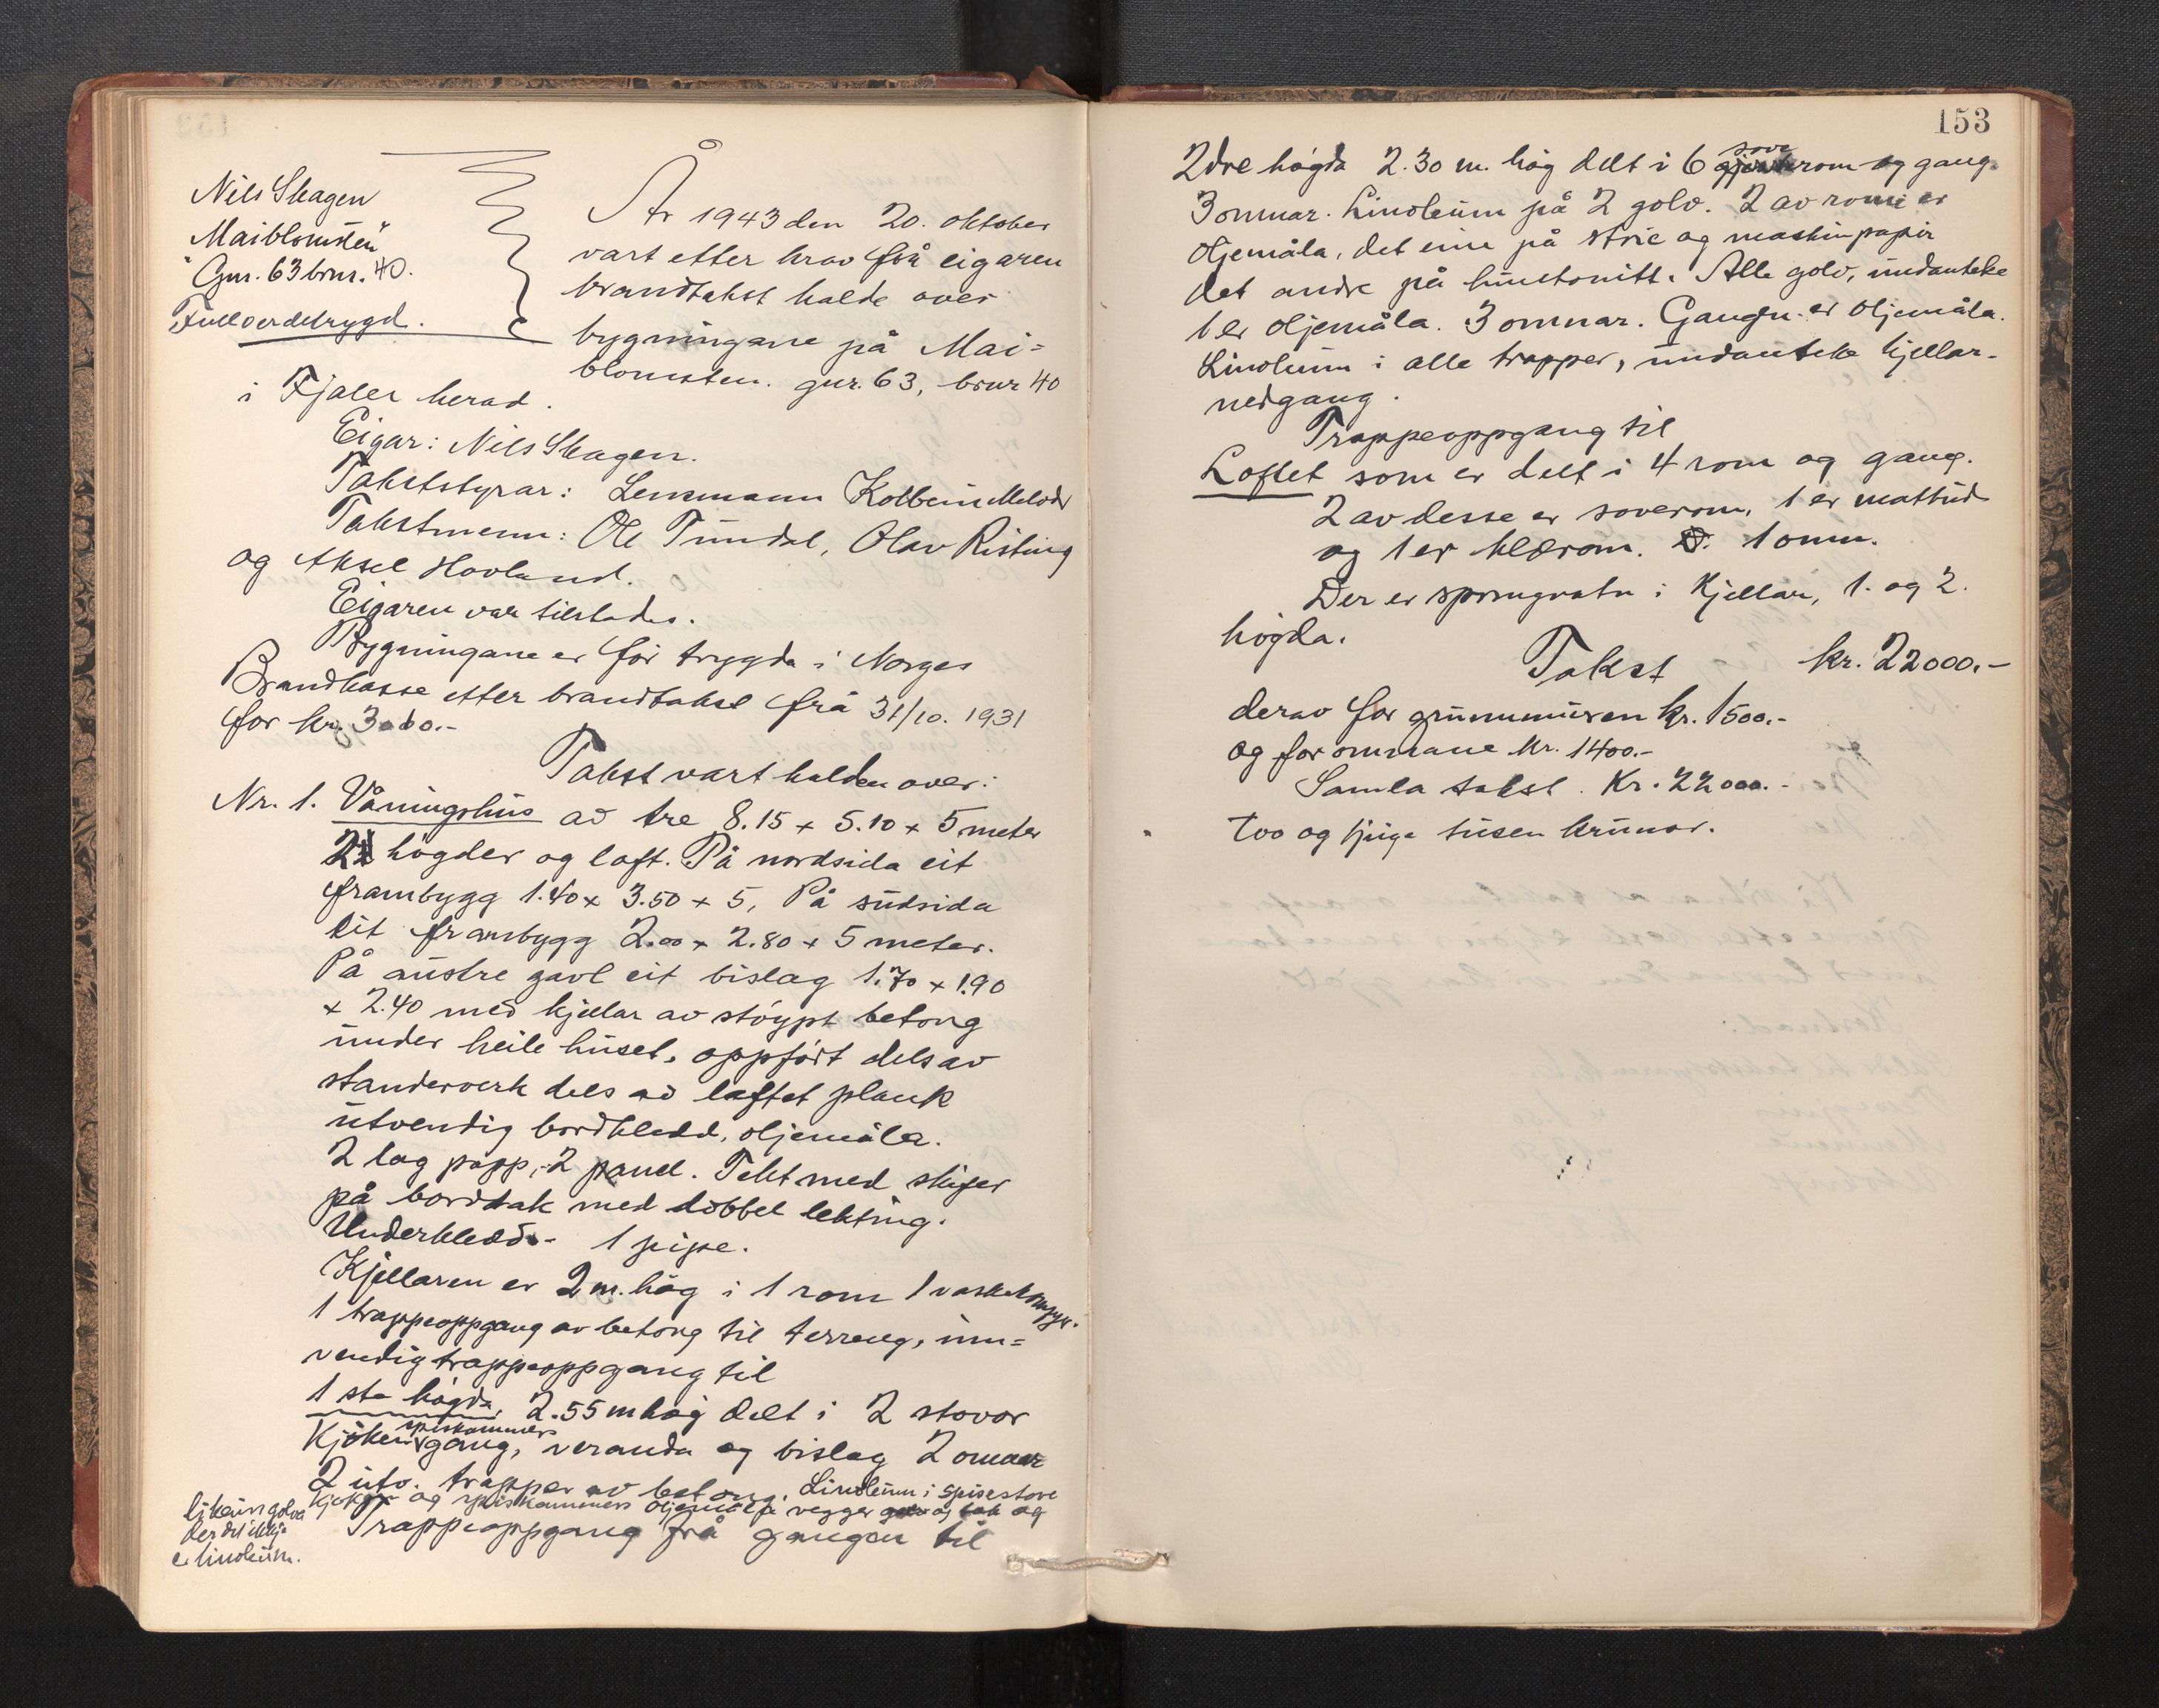 Nils Skagen
"Maiblomsten"
Gnr. 63 brnr. 40.
Fullverdetrygd.
År 1943 den 20. oktober
vart etter krav frå eigaren
brandtakst halde over
bygningane på Mai=
blomsten. gnr. 63, brnr 40
i Fjaler herad.
Eigar: Nils Skagen.
Takststyrar: Lensmann Kolbein Melvær
Takstmenn: Ole Tundal, Olav Risting
og Aksel Hovland.
Eigaren var tilstades.
Bygningane er før trygda i Norges
Brandkasse etter brandtakst frå 31/10. 1931
for kr.
Takst vart halden over:
Nr. 1. Våningshus av tre 8.15 + 5.10 + 5 meter
2 högder og loft. På nordsida eit
frambygg 1.40 x 3.50 + 5, På sudsida
eit frambygg 2.00 x 2.80 + 5 meter.
På austre gavl eit bislag 1.70 x 1.90
x 2.40 med kjellar av støypt betong
under heile huset, oppført dels av
standerverk dels av laftet plank
utvendig bordkledd, oljemåla.
2 lag papp, 2 panel. Tekt med skifer
på bordtak med dobbel lekting.
Underkledd. - 1 pipe.
Kjellaren er 2 m. høg i 1 rom 1 vaskekomfyr.
1 trappeoppgang av betong til terreng, inn=
vendig trappeoppgang til
1 ste høgda, 2.55 m høg delt i 2 stovor
spiskammers
Kjøken gang, veranda og bislag 2 omnar
2 utv. trapper av betong. Linoleum i spisestove
kjøken og spiskammers oljemåla vegger og tak og
likeins golva
der det ikkje
e linoleum.
Trappeoppgang frå gangen til
153
2dre høgda 2.30 m. høg delt i 6 soverom og gang.
3 omnar. Linoleum på 2 golv. 2 av romi er
oljemåla, det eine på strie og maskinpapir
det andre på huntonitt. Alle golv, undanteke
1 er oljemåla. 3 omnar. Gangen er oljemåla.
Linoleum i alle trapper, undanteke kjellar-
nedgang.
Trappeoppgang til
Loftet som er delt i 4 rom og gang.
2 av desse er soverom, 1 er matbud
og 1 er klærom. 1 omn.
Der er springvatn i Kjellar, 1. og 2.
høgda.
Takst kr. 22000.-
derav for grunnmuren kr. 1500.-
og for omnane kr. 1400.-
Samla takst. Kr. 22000.-
Tvo og tjuge tusen krunor.